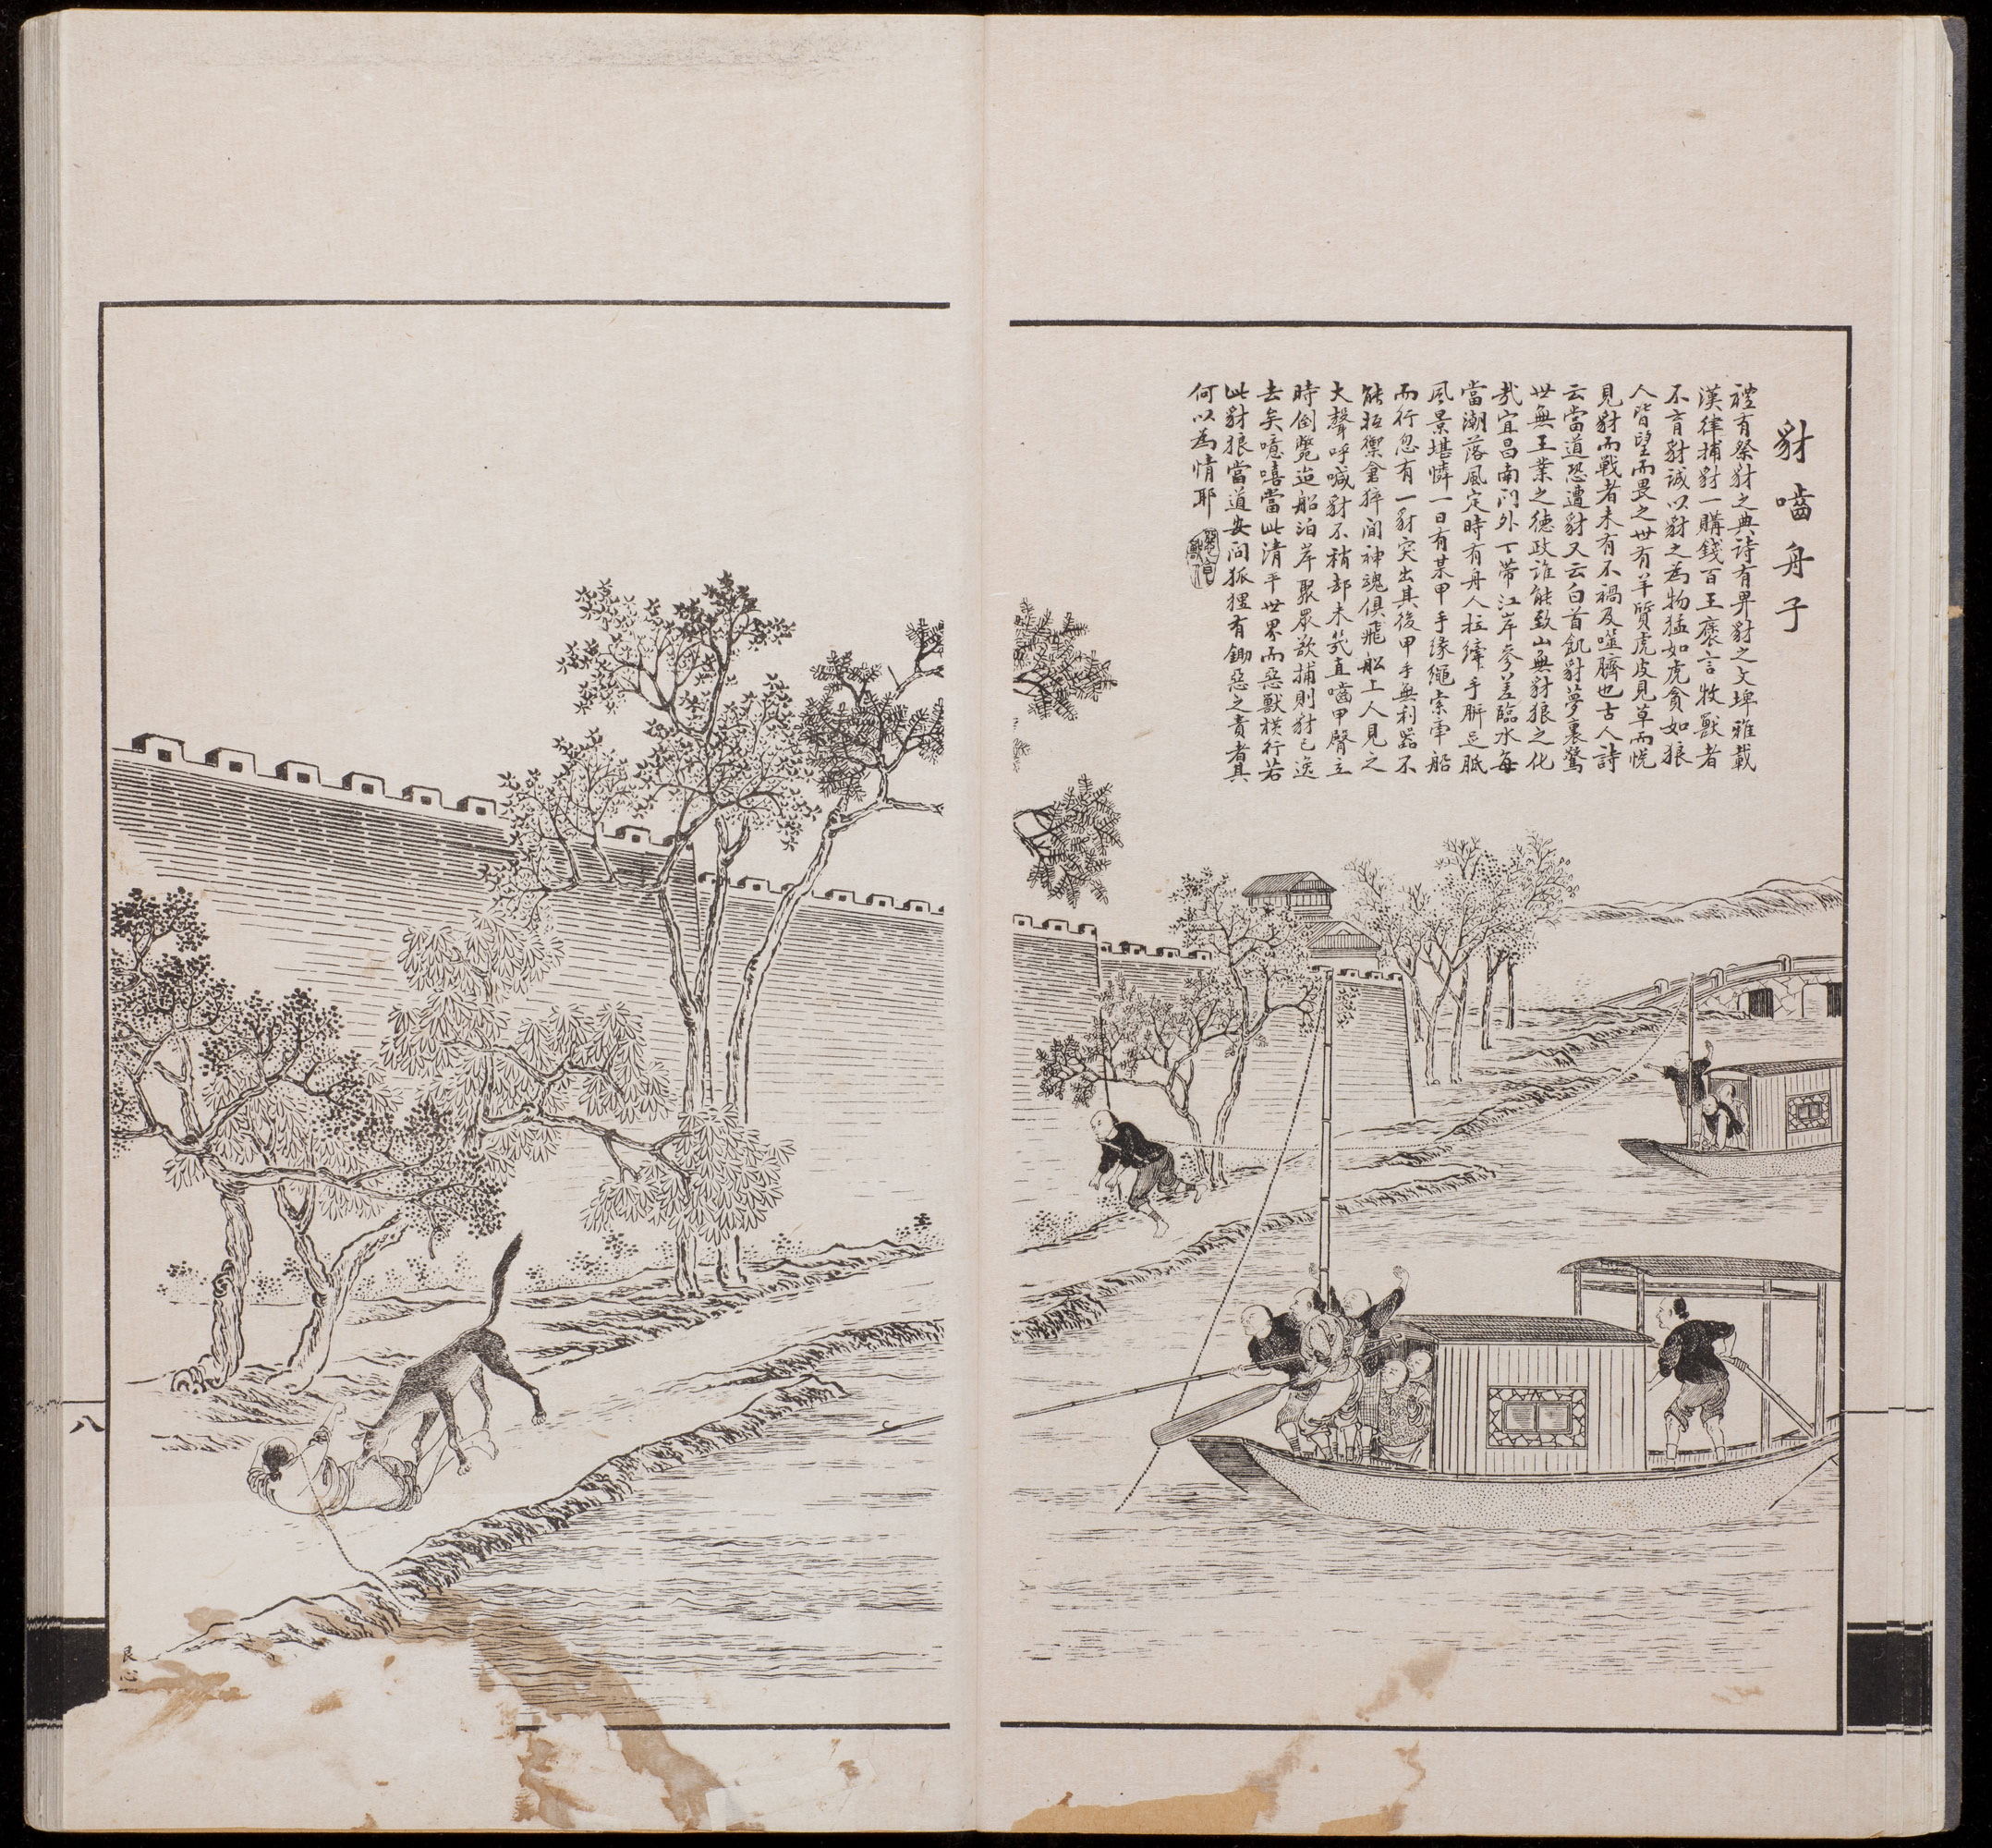 豺嚙舟子
禮有祭豺之典詩有畀豺之文埤雅載
漢律捕豺一購錢百王褒言牧獸者
不育豺誠以豺之為物猛如虎貪如狼
人皆望而畏之世有羊質虎皮見草而悅
見豺而戰者未有不禍及噬臍也古人詩
云當道恐遭豺又云白首飢豺夢裏驚
世無王業之德政誰能致山無豺狼之化
哉宜昌南門外一帶江岸參差臨水每
當潮落風定時有舟人拉縴手胼足胝
風景堪憐一日有某甲手緣繩索牽船
而行忽有一豺突出其後甲手無利器不
能抵禦倉猝間神魂俱飛船上人見之
大聲呼喊豺不稍却未幾直嚙甲臀立
時倒斃迨船泊岸聚眾欲捕則豺已逸
去矣噫嘻當此清平世界而惡獸橫行若
此豺狼當道安問狐狸有鋤惡之責者其
何以為情耶
八
艮心